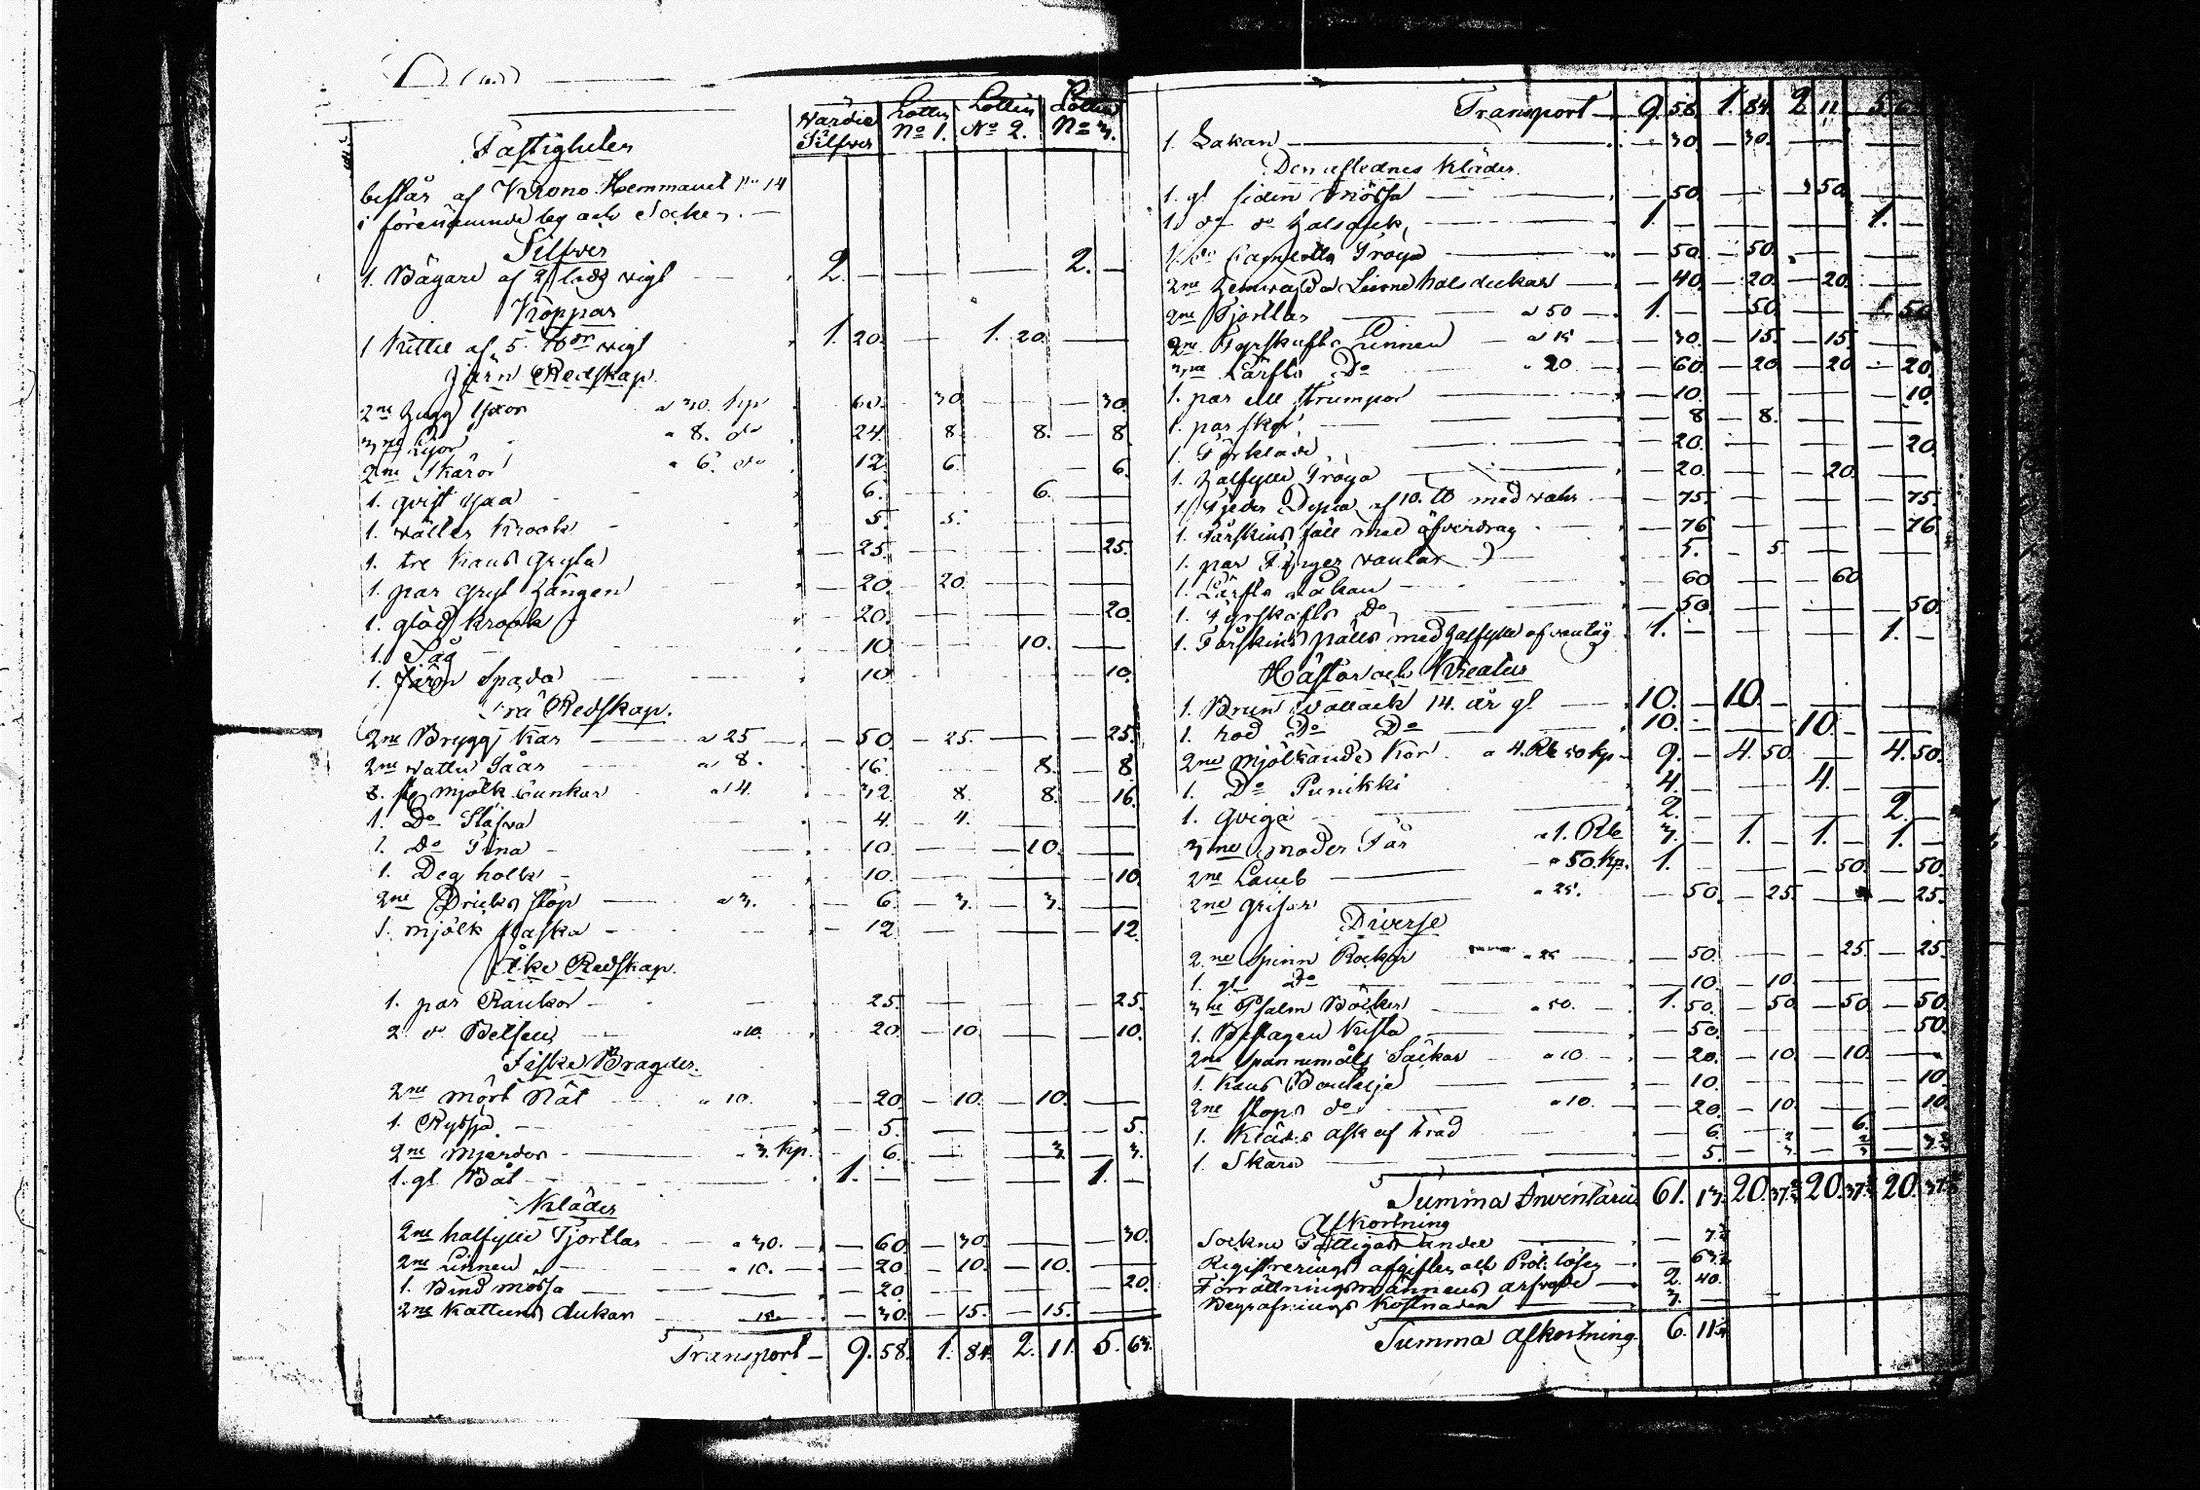 Wärdie Silfver | Lotten No 1. | Lotten No 2. | Lotten No 3.
Fastigheten
består af Krono Hemmanet No 14
i förenämnde by och Socken.
Silfver
1. Bägare af 2 lods vigt 2. — 2. —
Koppar
1 Kittel af 5 vigt 1. 20. 1. 20.
Järn Redskap.
2ne Hugg Yxor a 30. kp 60. 30. 30.
3ne Lior " 8. do 24. 8. 8. 8.
2ne Skäror " 6. do 12. 6. 6.
1. qvist Yxa 6. 6.
1. Krook 5. 5.
1. tre Kans Gryta 25. 25.
1. par Gryt Hängen 20. 20.
1. glöd Krook 20. 20.
1. Såg 10. 10.
1. Järn Spada 10. 10.
Trä Redskap.
2ne Brygg Kar a 25 50. 25. 25.
2ne vattu Såar a 8. 16. 8. 8.
8. mjölk bunkar a 4. 32. 8. 8. 16.
1. Do Stäfva 4. 4.
1. Do Tina 10. 10.
1. Deg holk 10. 10.
2ne Dricks stop a 3. 6. 3. 3.
1. mjölk flaska 12. 12.
Åke Redskap.
1. par Rankor 25. 25.
2. do Betslen " 10. 20. 10. 10.
Fiske Bragder.
2ne mört Nät " 10. 20. 10. 10.
1. Ryssja 5. 5.
2ne Mjerdor " 3. kp. 6. 3. 3.
1. gl Båt 1. — 1. —
Kläder
2ne halfylle Tjortlar " 30. 60. 30. 30.
2ne Linnen " 10. 20. 10. 10.
1. Bind mössa 20. 20.
2ne Kattuns dukar 15. 30. 15. 15.
Transport 9. 58. 1. 84. 2. 11. 5. 63.
Transport 9. 58. 1. 84. 2 11. 5. 63.
1. Lakan 30. 30.
Den aflednes Kläder.
1. gl siden Mössa 50. 50.
1. do do halsduk 1. — 1. —
1. do Tröya 50. 50.
2ne halsdukar 40. 20. 20.
2ne Tjortlar a 50 1. — 50. 50.
2ne Fyrskafts Linnen a 15 30. 15. 15.
3ne Lärfts Do " 20 60. 20 20 20.
1. par ulle strumpor 10. 10.
1. par skor 8. 8.
1. Förkläde 20. 20.
1. halfylle Tröya 20. 20.
1. Fjeder Dyna af 10. med 75. 75.
1. Fårskins fäll med öfverdrag 76 76.
1. par Finger vantar 5. 5.
1. Lärfts Lakan 60 60
1. Fyrskafts Do 50. 50.
1. Fårskins pälts med halfylle 1. — 1. —
Hästar och Kreatur
1. Brun Vallack 14. år gl 10. — 10. —
1. Do Do 10. — 10. —
2ne Mjölkande Kor a 4. Rb 50 kp 9. — 4. 50. 4. 50.
1. Do Punikki 4. — 4. —
1. qviga 2. — 2. —
3ne moder Får a 1. Rb 3. — 1. — 1. — 1. —
2ne Lamb " 50. kp. 1. — 50. 50.
2ne grisar " 25. 50. 25. 25.
Diverse
2ne Spinn Rockar " 25 50. 25. 25.
1. gl Do 10. 10.
3ne Psalm Böcker " 50. 1. 50. 50. 50. 50.
1. Beslagen Kista 50. 50.
2ne Spannemåls Säckar " 10 20. 10. 10.
1. Kans Boutelje 10. 10.
2ne stops do " 10. 20. 10. 10.
1. Kläds ask af träd 6. 6.
1. Skärd 5.
Summa Inventarii 61. 13. 20. 37⅔ 20. 37⅔ 20. 37⅔
Afkortning
Sockne Fattigas andel
Registrerings afgiften och Prot: lösen
Förrättningsmännens arfvode 2. 40.
Begrafnings Kostnaden 3. —
Summa Afkortning 6. 11